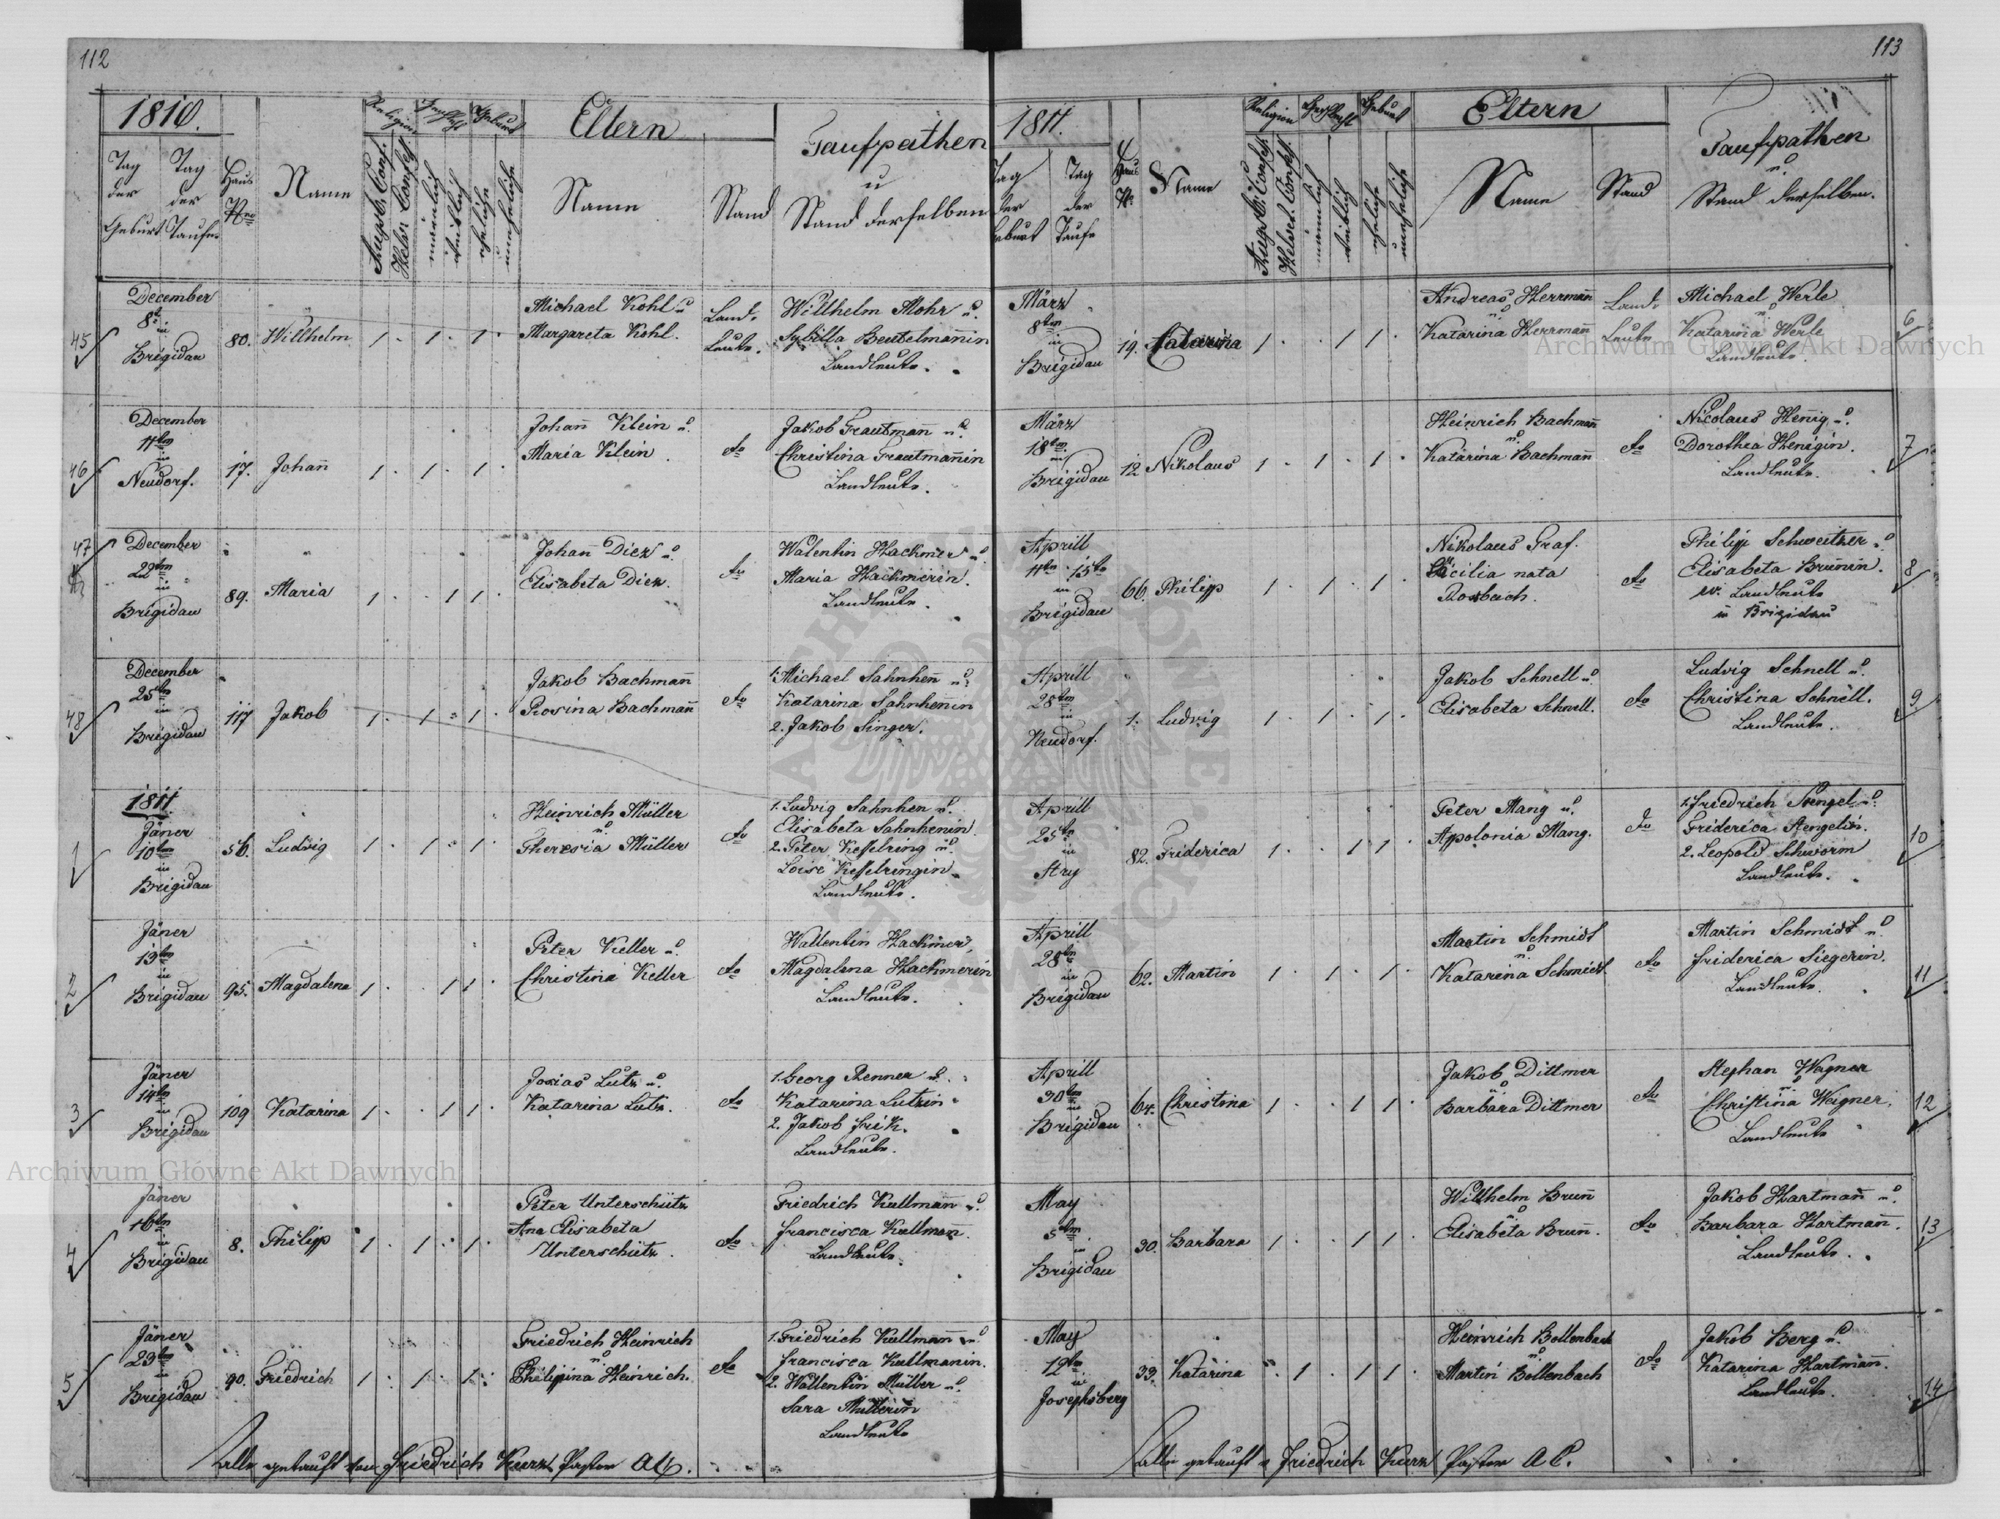 112
1810.
Tag der Geburt
Tag der Taufe
Haus Nro
Name
Religion
Augsb. Conf.
Helv. Confess
Geschlecht
mänlich
weiblich
Geburt
eheliche
uneheliche
Eltern
Name
Stand
Taufpathen
u
Stand derselben
45
December
8t
in
Brigidau
80.
Willhelm
1 . 1 . 1 .
Michael Kohl u
Margareta Kohl.
Land-
Leute.
Willhelm Mohr u.
Sybilla Beutelmañin
Landleute.
46
December
11ten
in
Neudorf.
17.
Johañ
1 . 1 . 1 .
Johañ Klein u.
Maria Klein
do
Jakob Trautmañ u.
Christina Trautmañin
Landleute.
47
December
22ten
in
Brigidau
89.
Maria
1 . . 1 1 .
Johañ Diez u.
Elisabeta Diez.
do
Walentin Hackmer u.
Maria Hackmerin.
Landleute.
48
December
25ten
in
Brigidau
117
Jakob
1 . 1 . 1 .
Jakob Bachmañ
Rosina Bachmañ
do
1. Michael Sahnheñ u.
Katarina Sahnheñin
2. Jakob Singer.
1811.
1
Jäner
10ten
in
Brigidau
56.
Ludwig
1 . 1 . 1 .
Heinrich Müller
u.
Theresia Müller
do
1. Ludvig Sahnhen u.
Elisabeta Sahnhenin.
2. Peter Kesselring u.
Loise Kesselringin.
Landleute.
2
Jäner
13ten
in
Brigidau
95.
Magdalena
1 . . 1 1 .
Peter Keller u.
Christina Keller
do
Wallentin Hackmer,
Magdalena Hackmerin
Landleute.
3
Jäner
14ten
in
Brigidau
109
Katarina
1 . . 1 1 .
Josias Lutz u.
Katarina Lutz.
do
1. Georg Renner u.
Katarina Lutzin
2. Jakob Frik.
Landleute.
4
Jäner
16ten
in
Brigidau
8.
Philipp
1 . 1 . 1 .
Peter Unterschütz
Ana Elisabeta
Unterschütz.
do
Friedrich Kullmañ u.
Francisca Kullmañ.
Landleute.
5
Jäner
23ten
in
Brigidau
90.
Friedrich
1 . 1 . 1 .
Friedrich Heinrich
u.
Philippina Heinrich.
do
1. Friedrich Kullmañ u.
Francisca Kullmanin.
2. Wallentin Müller u.
Sara Müllerin
Landleute
alle getauft von Friedrich Kurz Pastor AC.
113
1811.
Tag der Geburt
Tag der Taufe
Haus No
Name
Religion
Augsb. Confess.
Helvet. Confess.
Geschlecht
mänlich
weiblich
Geburt
eheliche
uneheliche
Eltern
Name
Stand
Taufpathen
u.
Stand derselben.
März
8ten
in
Brigidau
19.
Katarina
1 . . 1 1 .
Andreas Herrmañ
u.
Katarina Herrmañ
Land-
Leute
Michael Werle
u.
Katarina Werle
Landleute.
6
März
18ten
in
Brigidau
12
Nikolaus
1 . 1 . 1 .
Heinrich Bachmañ
u.
Katarina Bachmañ
do
Nicolaus Heñig u.
Dorothea Henigin.
Landleute.
7
Aprill
11ten 15ten
in
Brigidau
66.
Philipp
1 . 1 . 1 .
Nikolaus Graf.
Cäcilia nata
Rosbach.
do
Philipp Schweitzer u.
Elisabeta Bruñin.
ev. Landleute
in Brigidau
8
Aprill
28ten
in
Neudorf.
1.
Ludvig
1 . 1 . 1 .
Jakob Schnell u.
Elisabeta Schnell.
do
Ludvig Schnell u.
Christina Schnell.
Landleute.
9
Aprill
25ten
in
Stry
82.
Friderica
1 . . 1 1 .
Peter Mang u.
Appolonia Mang.
do
1. Friedrich Stengel u.
Friderica Stengelin.
2. Leopold Schworm
Landleute.
10
Aprill
28ten
in
Brigidau
62.
Martin
1 . 1 . 1 .
Martin Schmidt
u.
Katarina Schmidt
do
Martin Schmidt u.
Friderica Siegerin.
Landleute.
11
Aprill
30ten
in
Brigidau
64.
Christina
1 . . 1 1 .
Jakob Dittmer
u
Barbara Dittmer
do
Stephan Wagner
u.
Christina Wagner.
Landleute
12
May
5ten
in
Brigidau
30.
Barbara
1 . . 1 1 .
Willhelm Bruñ
u.
Elisabeta Bruñ.
do
Jakob Hartmañ u.
Barbara Hartmañ.
Landleute.
13
May
12ten
in
Josephsberg
33.
Katarina
. 1 . 1 1 .
Heinrich Bollenbach
u.
Martin Bollenbach
do
Jakob Berg u.
Katarina Hartmañ.
Landleute.
14
alle getauft v Friedrich Kurz Pastor A C.
Archiwum Główne Akt Dawnych
Archiwum Główne Akt Dawnych